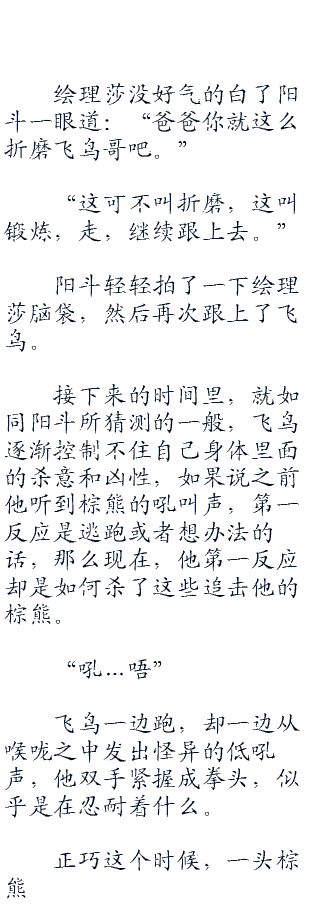 绘理莎没好气的白了阳
斗一眼道：“爸爸你就这么
折磨飞鸟哥吧。”
“这可不叫折磨，这叫
锻炼，走，继续跟上去。”
阳斗轻轻拍了一下绘理
莎脑袋，然后再次跟上了飞
鸟。
接下来的时间里，就如
同阳斗所猜测的一般，飞鸟
逐渐控制不住自己身体里面
的杀意和凶性，如果说之前
他听到棕熊的吼叫声，第一
反应是逃跑或者想办法的
话，那么现在，他第一反应
却是如何杀了这些追击他的
棕熊。
“吼…唔”
飞鸟一边跑，却一边从
喉咙之中发出怪异的低吼
声，他双手紧握成拳头，似
乎是在忍耐着什么。
正巧这个时候，一头棕
熊